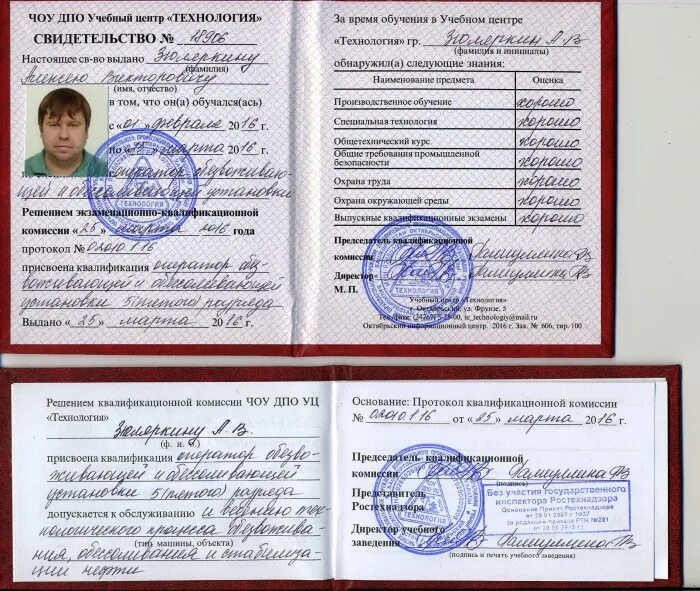 ЧОУ ДПО Учебный центр «ТЕХНОЛОГИЯ»
СВИДЕТЕЛЬСТВО №
Настоящее св-во выдано Зюмеркину
(фамилия)
Алексею Викторовичу
(имя, отчество)
в том, что он(а) обучался(ась)
с «01» февраля 2016 г.
по « » марта 2016 г.
оператор обезвоживаю-
щей и обессоливающей установки
Решением экзаменационно-квалификационной
комиссии «25» марта 2016 года
протокол № 02010.1.16
присвоена квалификация оператор обез-
воживающей и обессоливающей
установки 5(пятого) разряда
Выдано «25» марта 2016 г.
За время обучения в Учебном центре
«Технология» гр. Зюмеркин А.В
(фамилия и инициалы)
обнаружил(а) следующие знания:
Наименование предмета Оценка
Производственное обучение хорошо
Специальная технология хорошо
Общетехнический курс хорошо
Общие требования промышленной
безопасности хорошо
Охрана труда хорошо
Охрана окружающей среды хорошо
Выпускные квалификационные экзамены хорошо
Председатель квалификационной
комиссии
Директор
М. П.
ТЕХНОЛОГИЯ
Учебный центр «Технология»
г. Октябрьский, ул. Фрунзе, 5
Тел./факс: (34767) 5-25-00, tc_technologiy@mail.ru
Октябрьский информационный центр. 2016 г. Зак. № 606, тир. 100
Решением квалификационной комиссии ЧОУ ДПО УЦ
«Технология»
Зюмеркину А.В.
(ф. и. о.)
присвоена квалификация оператор обезво-
живающей и обессоливающей
установки 5(пятого) разряда
допускается к обслуживанию и ведению тех-
нологического процесса обезвожива-
(тип машины, объекта)
ния, обессоливания и стабилиза-
ции нефти
Основание: Протокол квалификационной комиссии
№ 02010.1.16 от «25» марта 2016 г.
Председатель квалификационной
комиссии
(подпись)
Представитель
Ростехнадзора
Без участия государственного
инспектора Ростехнадзора
Основание Приказ Ростехнадзора
от 29 01 2007 г. №37
(в редакции приказа РТН №251
от 30 06 2015 г.)
Директор учебного
заведения
(подпись и печать учебного заведения)
ТЕХНОЛОГИЯ